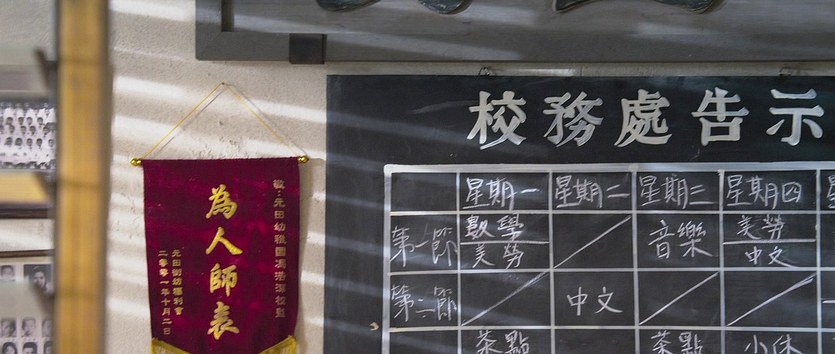 校務處告示
星期一 星期二 星期三 星期四
第一節 數學 美勞 音樂 美勞 中文
第二節 中文
茶點 茶點 小休
敬：元田幼稚園馮浩滔校監
為人師表
元田街坊福利會
二零零一年十月二日